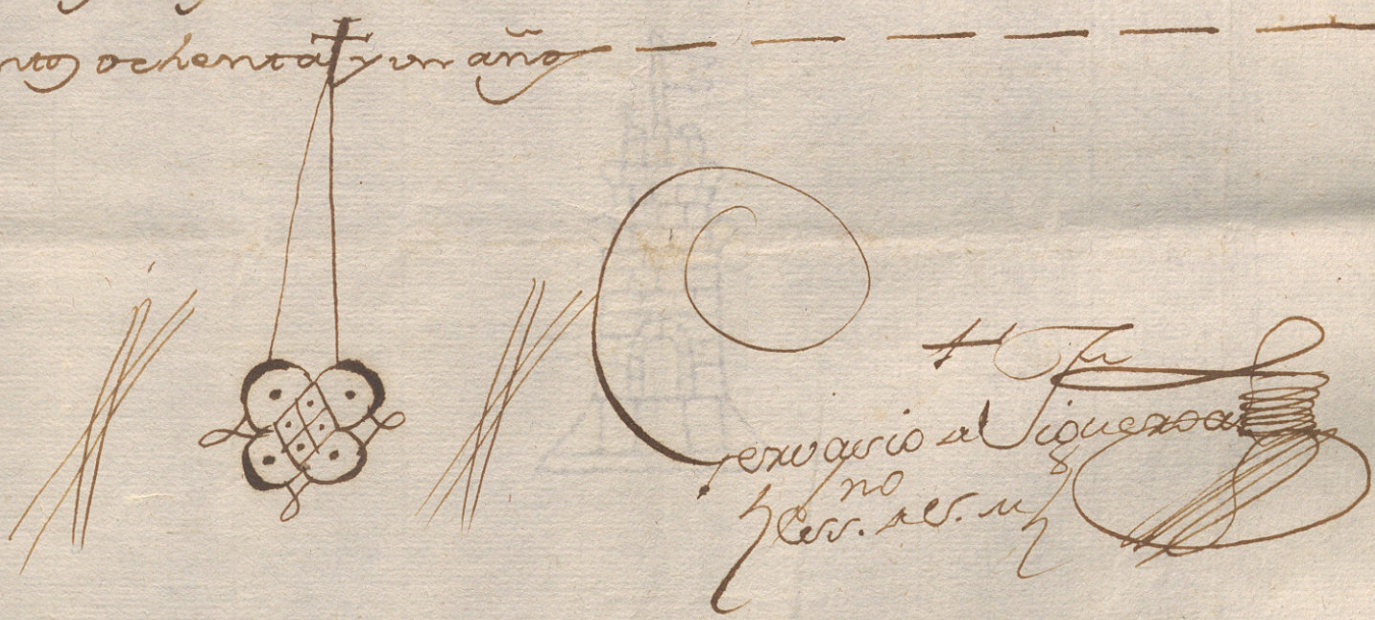 ntos ochenta y un años
Gervasio de Figueroa
ess.no de S. M.